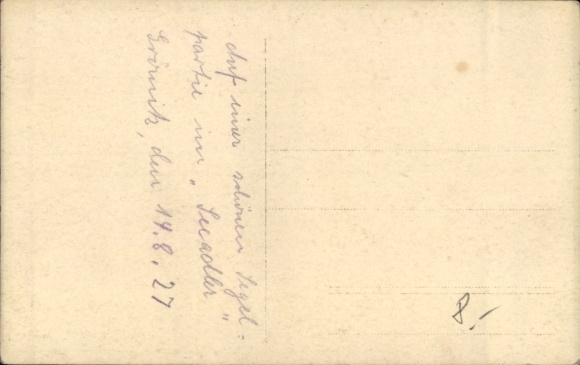 Auf einer schönen Segel-
partie im „Seeadler"
Grömitz, den 14.8.27
8.-